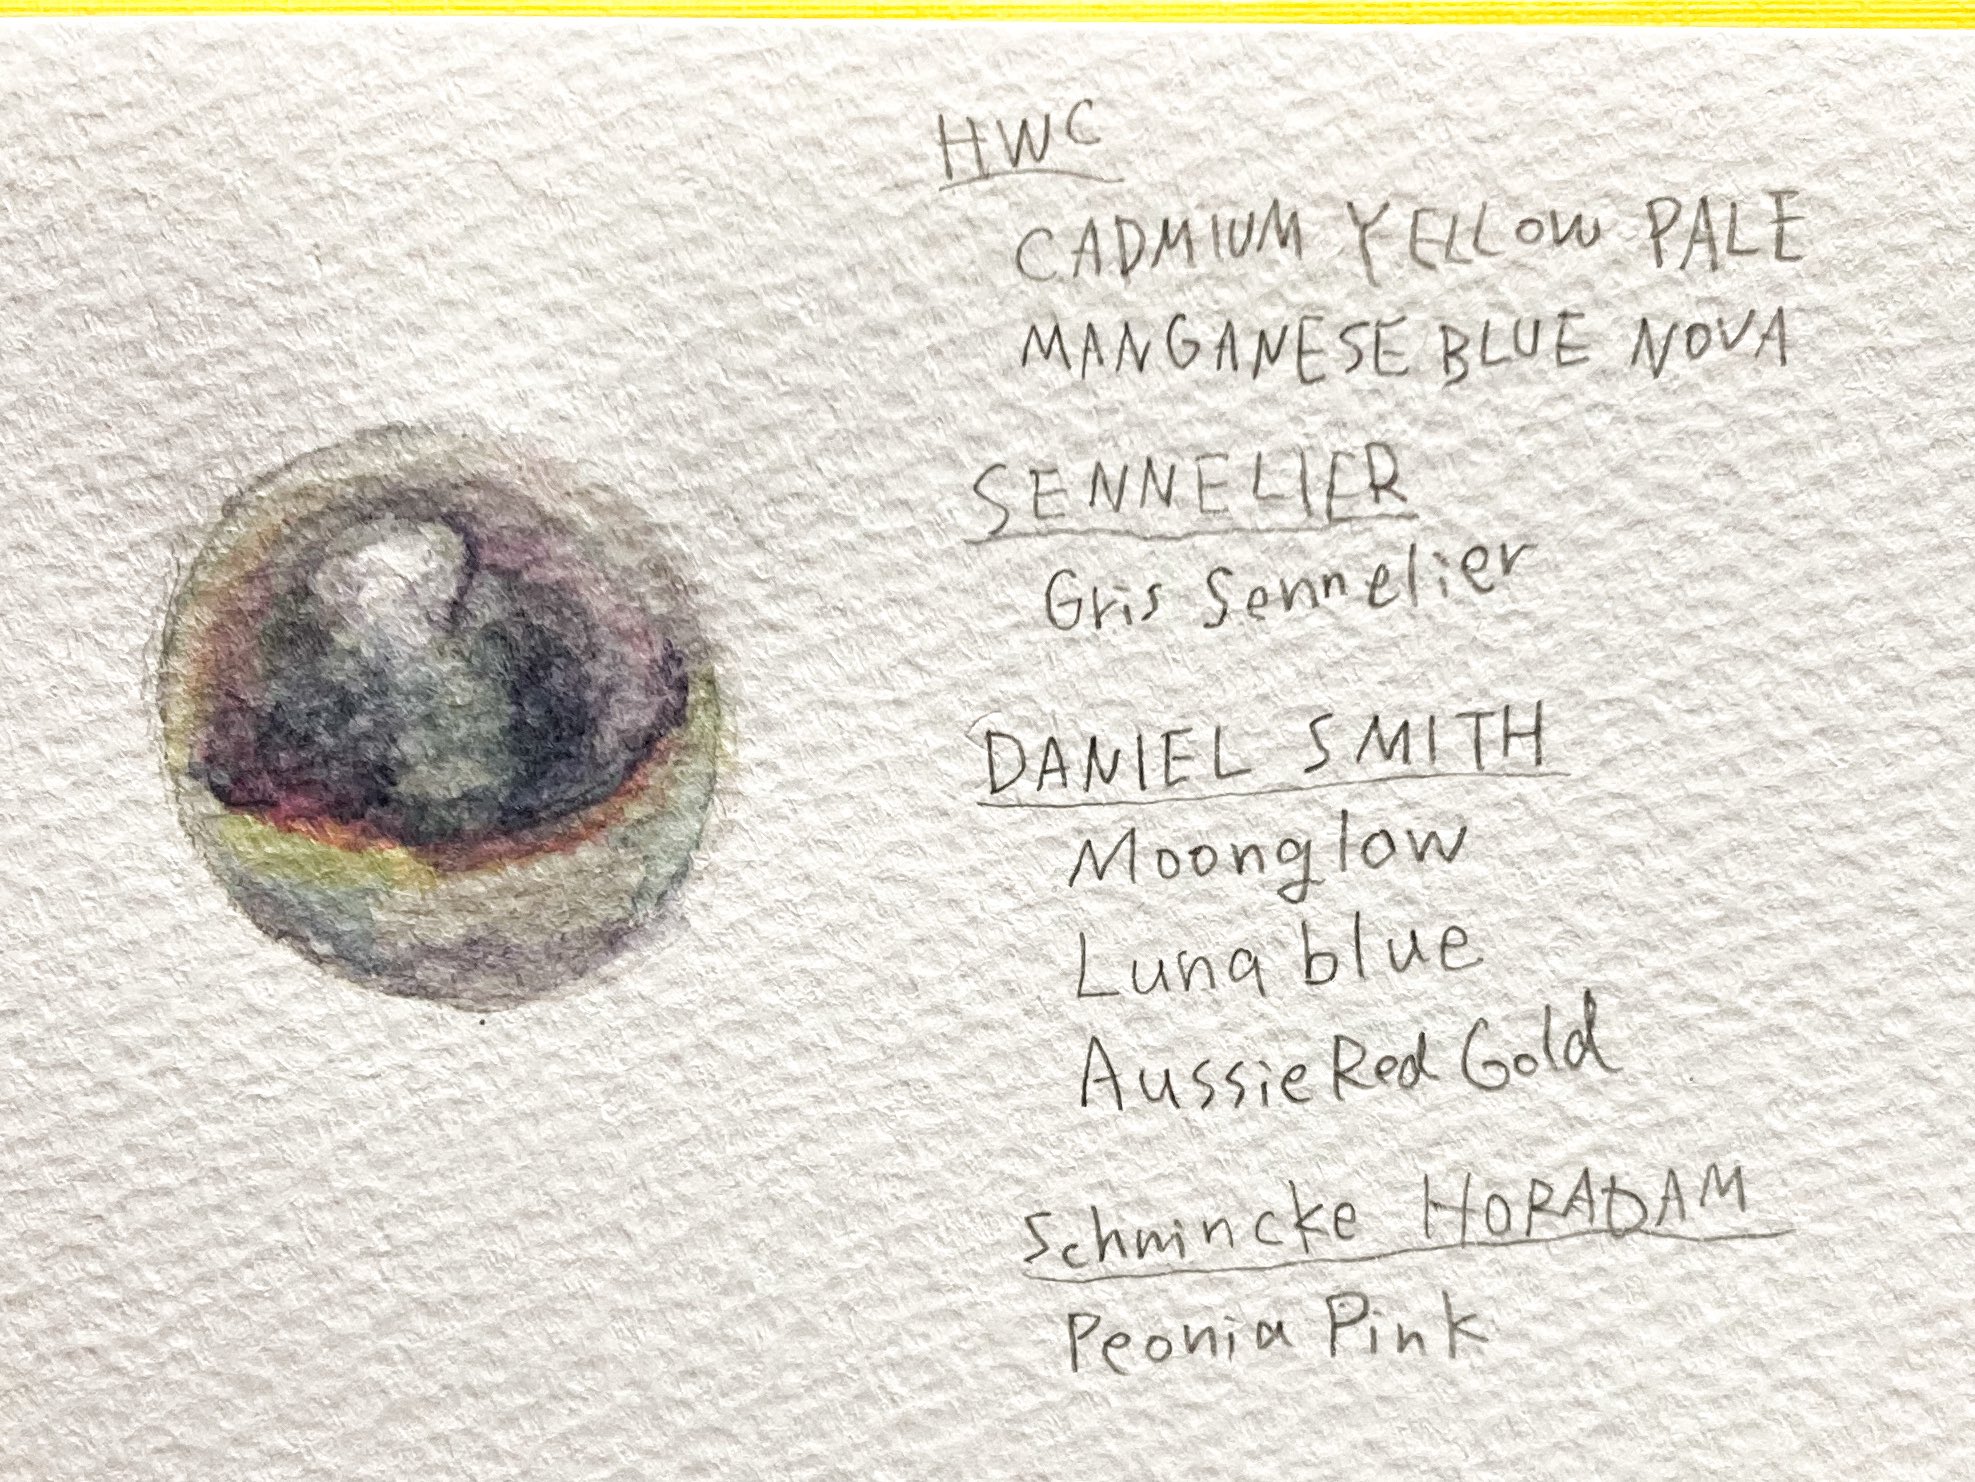 HWC
CADMIUM YELLOW PALE
MANGANESE BLUE NOVA
SENNELIER
Gris Sennelier
DANIEL SMITH
Moonglow
Luna blue
Aussie Red Gold
Schmincke HORADAM
Peonia Pink